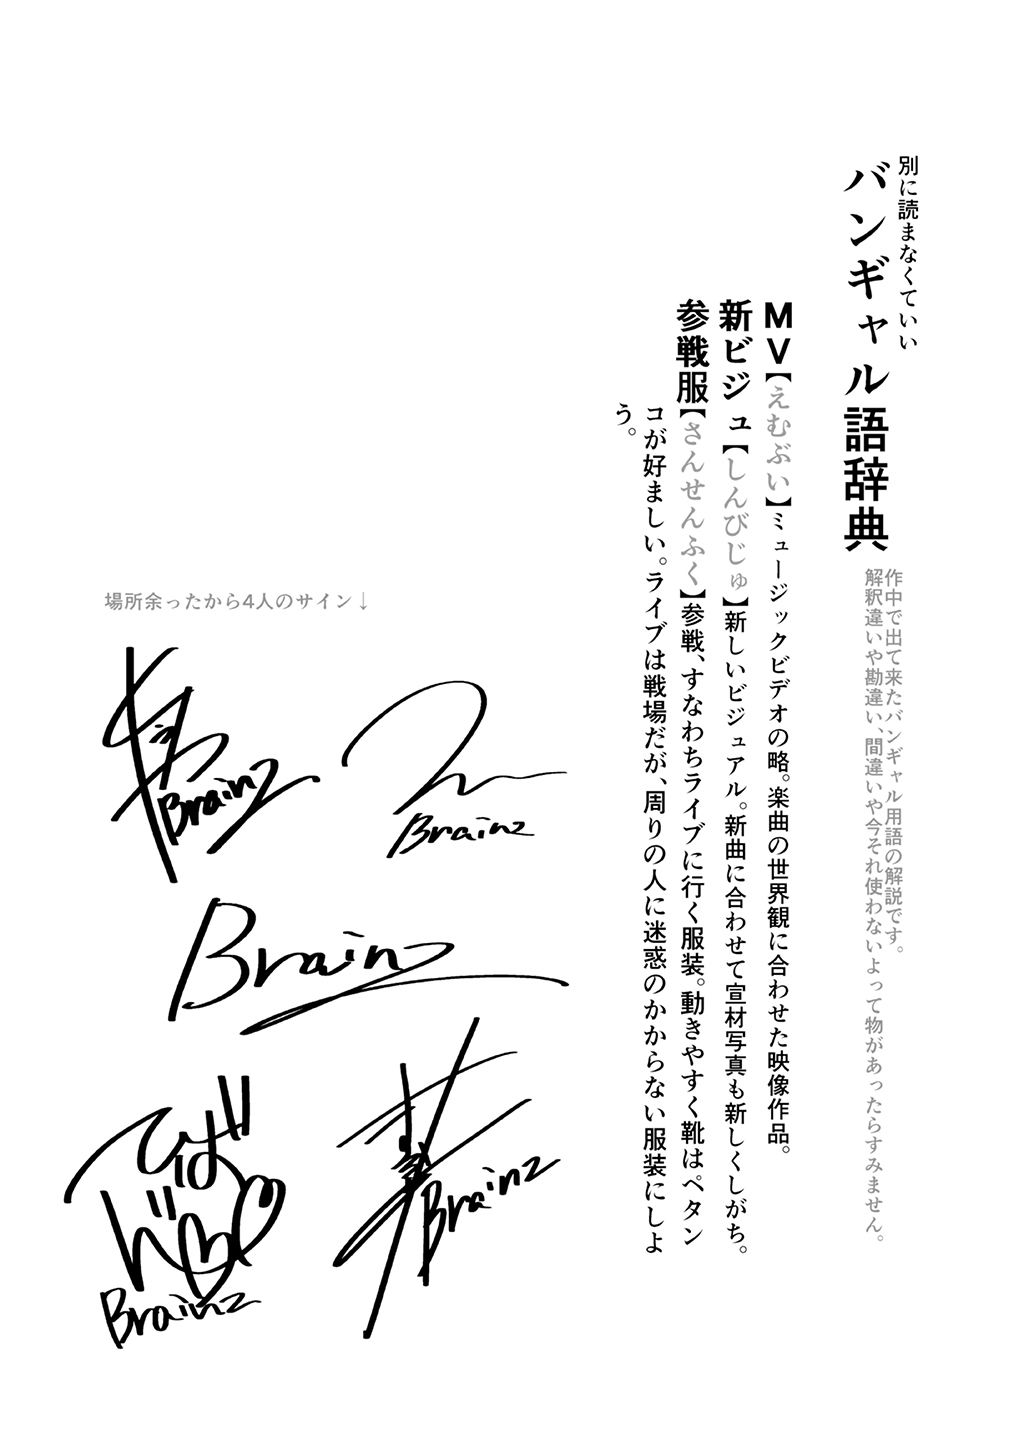 別に読まなくていい
バンギャル語辞典
作中で出て来たバンギャル用語の解説です。
解釈違いや勘違い、間違いや今それ使わないよって物があったらすみません。
MV【えむぶい】ミュージックビデオの略。楽曲の世界観に合わせた映像作品。
新ビジュ【しんびじゅ】新しいビジュアル。新曲に合わせて宣材写真も新しくしがち。
参戦服【さんせんふく】参戦、すなわちライブに行く服装。動きやすく靴はペタン
コが好ましい。ライブは戦場だが、周りの人に迷惑のかからない服装にしよ
う。
場所余ったから4人のサイン↓
Brainz
Brainz
Brainz
Brainz
Brainz